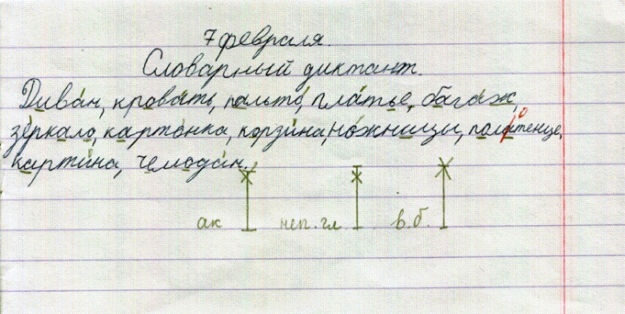 7 февраля.
Словарный диктант.
Диван, кровать, пальто, платье, багаж,
зеркало, картонка, корзина, ножницы, полотенце,
картина, чемодан.
ак неп.гл в.б.